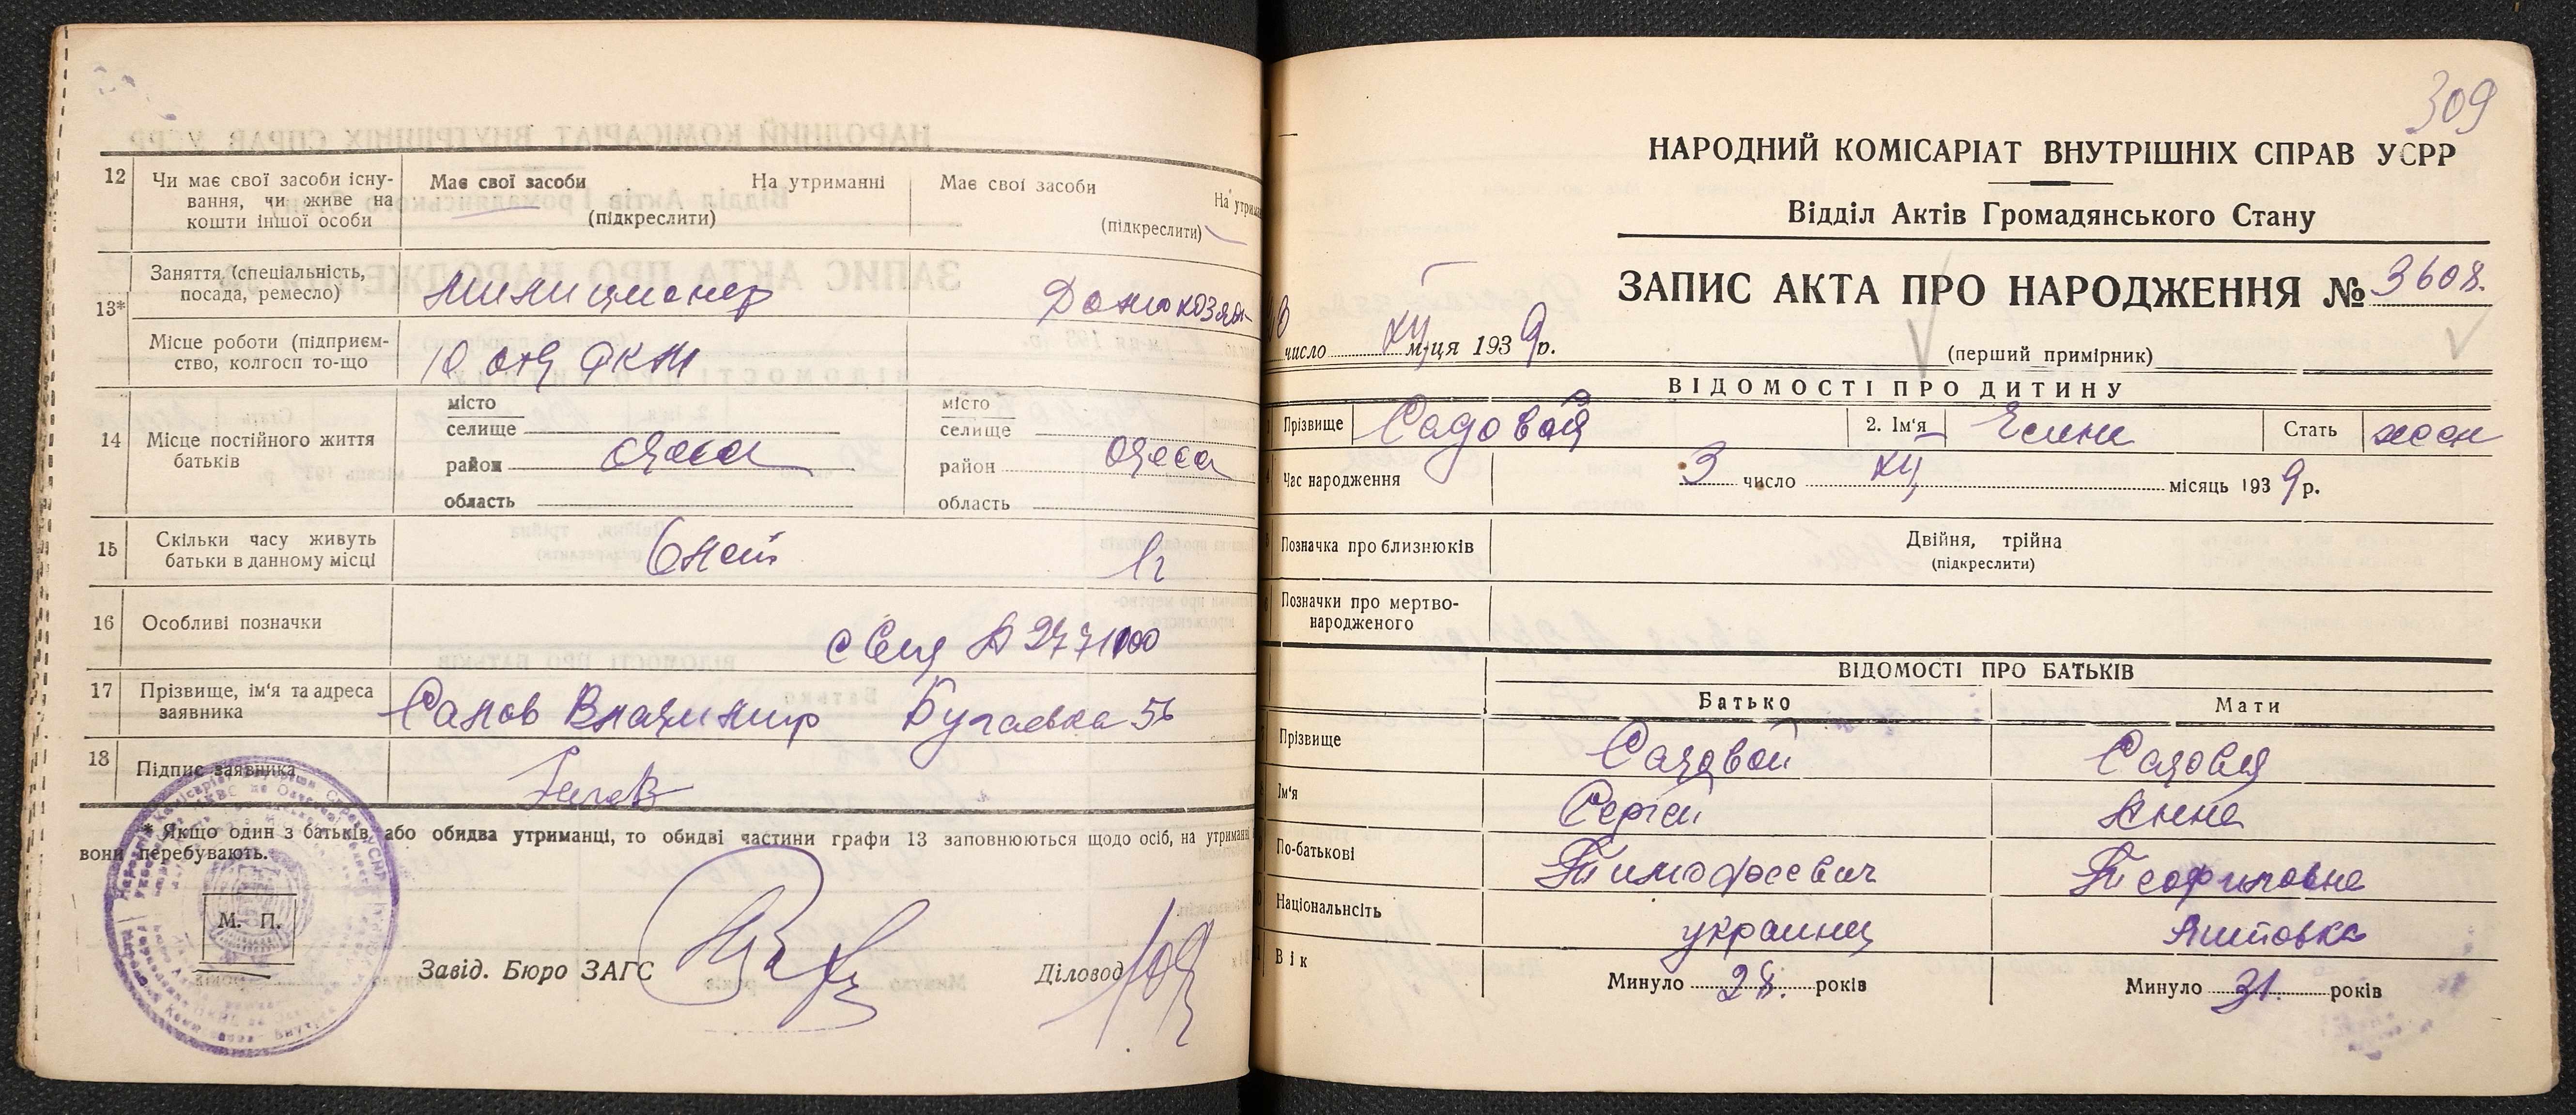 12 Чи має свої засоби існу-
вання, чи живе на
кошти іншої особи
Має свої засоби На утриманні
(підкреслити)
Має свої засоби На утрима
(підкреслити)
13*
Заняття (спеціальність,
посада, ремесло)
Милиционер Домохозяй
Місце роботи (підприєм-
ство, колгосп то-що
10 отд РКМ
14 Місце постійного життя
батьків
місто
селище
район Одесса
область
місто
селище
район Одесса
область
15 Скільки часу живуть
батьки в данному місці
6 лет 1 г
16 Особливі позначки
17 Прізвище, ім'я та адреса
заявника
Владимир Бугаевка 56
18 Підпис заявника
* Якщо один з батьків, або обидва утриманці, то обидві частини графи 13 заповнюються щодо осіб, на утриманні
вони перебувають.
М. П.
Завід. Бюро ЗАГС
Діловод
309
НАРОДНИЙ КОМІСАРІАТ ВНУТРІШНІХ СПРАВ УСРР
Відділ Актів Громадянського Стану
ЗАПИС АКТА ПРО НАРОДЖЕННЯ № 3608.
число XII м-ця 1939 р.
(перший примірник)
ВІДОМОСТІ ПРО ДИТИНУ
Прізвище Садовой 2. Ім'я Стать жен
Час народження 3 число XII місяць 1939 р.
Позначка про близнюків
Двійня, трійна
(підкреслити)
Позначки про мертво-
народженого
ВІДОМОСТІ ПРО БАТЬКІВ
Батько Мати
Прізвище Садовой Садовая
Ім'я Сергей Анна
По-батькові Тимофеевич Теофиловна
Національність украинец Литовка
Вік Минуло 28. років Минуло 31. років